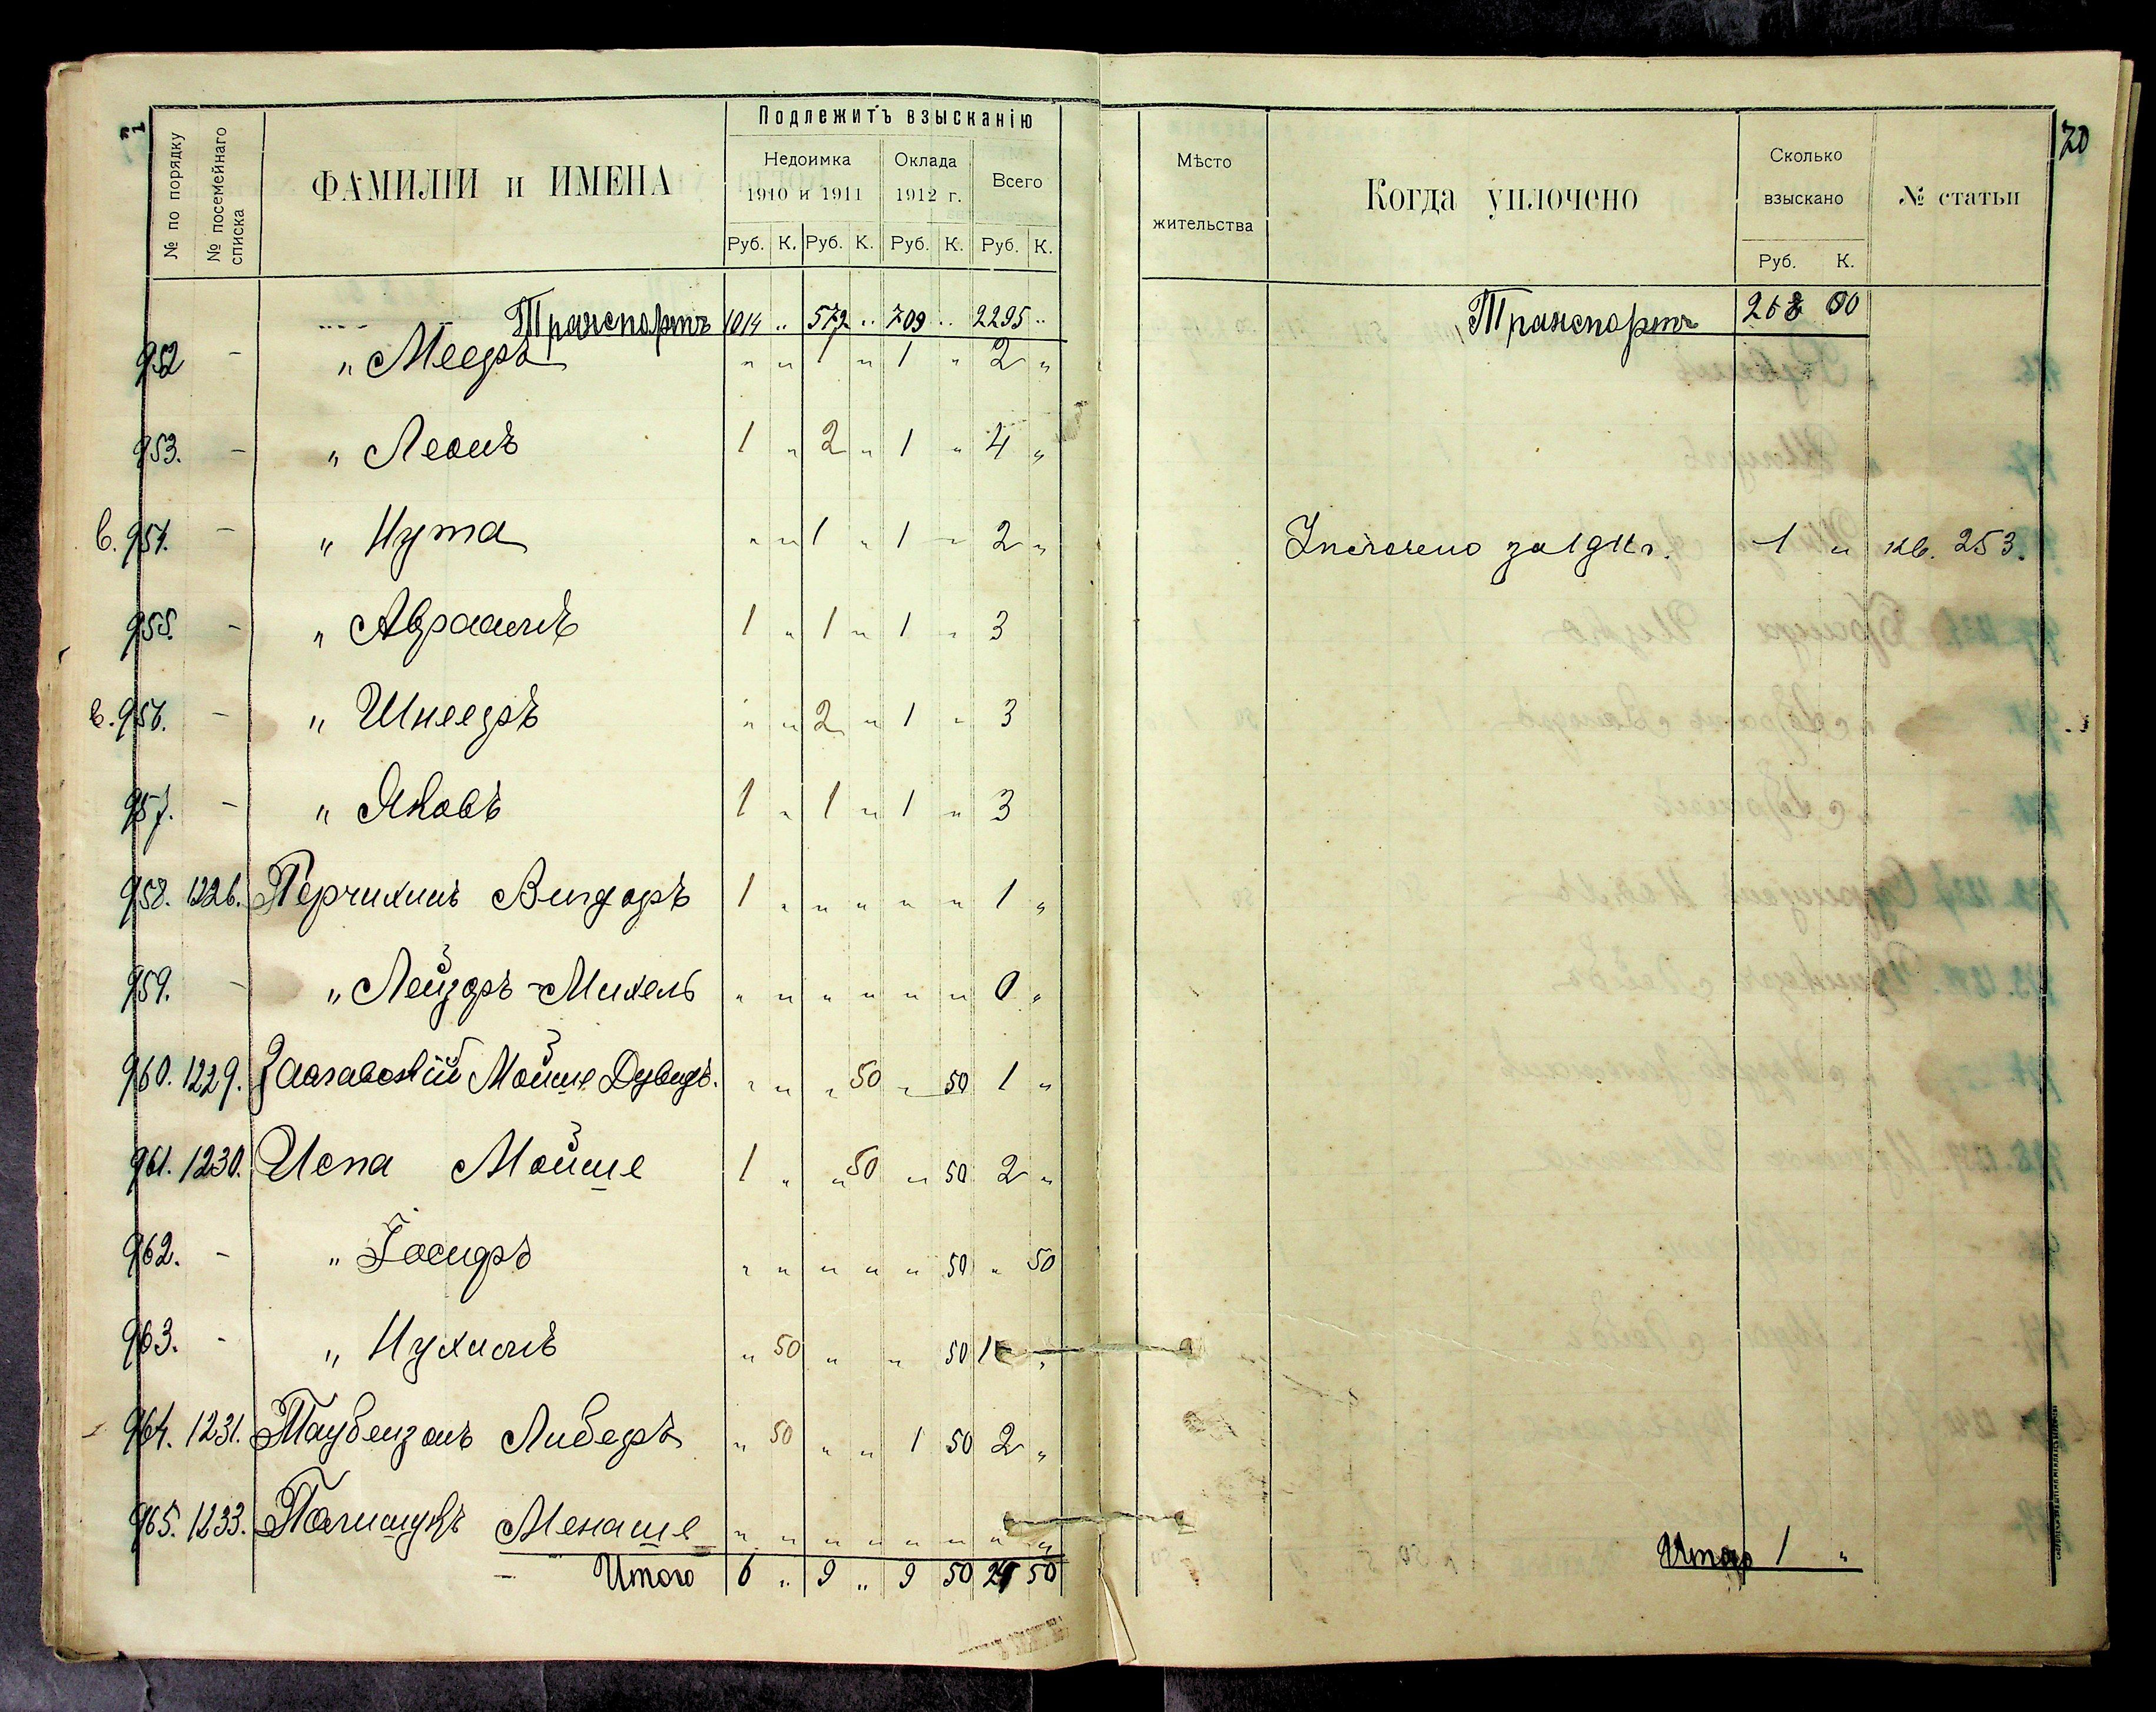 № по порядку
№ посемейнаго списка
ФАМИЛІИ и ИМЕНА
Подлежитъ взысканію
Недоимка 1910 и 1911
Оклада 1912 г.
Всего
Руб. К. Руб. К. Руб. К. Руб. К.
Мѣсто жительства
Когда уплочено
Сколько взыскано
Руб. К.
№ статьи
70
Транспортъ 1014 " 572 " 709 " 2295 "
952 - " Мееръ " " 1 " 1 " 2 "
953. - " Леонъ 1 " 2 " 1 " 4 "
в. 954. - " Нута " " 1 " 1 " 2 "
955. - " Авраамъ 1 " 1 " 1 " 3
в. 956. - " Шнееръ " " 2 " 1 " 3
957. - " Яковъ 1 " 1 " 1 " 3
958. 1226. Перчихинъ 1 " " " " " 1 "
959. - " Лейзоръ-Михель " " " " " " 0 "
960. 1229. Мойше Дувидъ. " " " 50 " 50 1 "
961. 1230. Испа Мойше 1 " " 50 " 50 2 "
962. - " " " " " " 50 " 50
963. - " Нухимъ " 50 " " 50 1 "
964. 1231. Таубензонъ Либеръ " 50 " " 1 50 2 "
965. 1233. Менаше " " " " " " " "
Итого 6 " 9 " 9 50 50
Транспортъ
Уплочено за 1911 г. 1 " кв. 253.
Итого 1 "